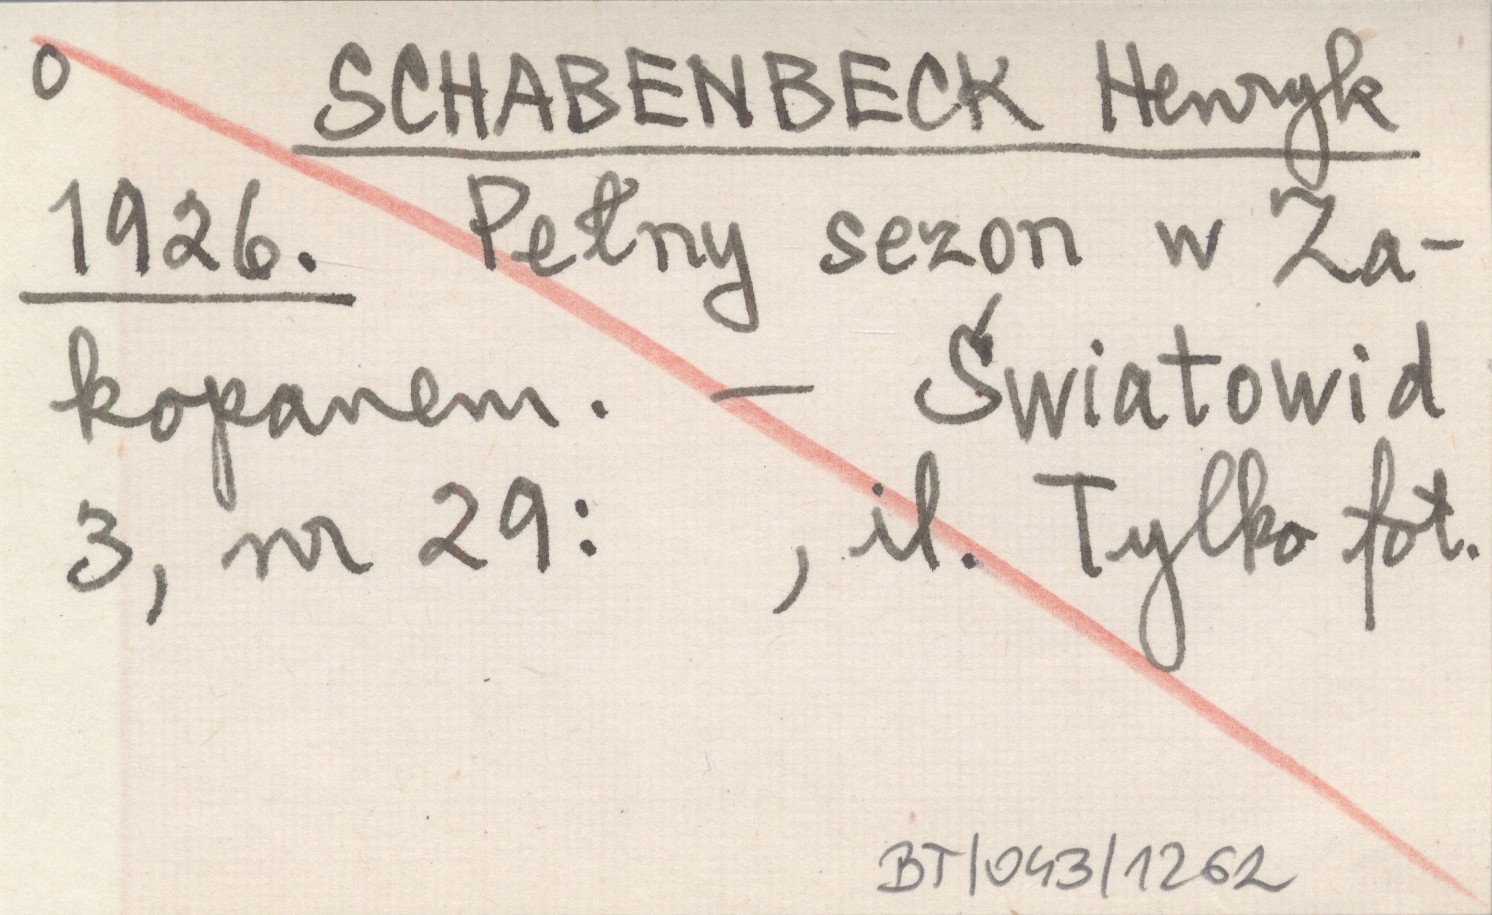 0 SCHABENBECK Henryk
1926. Pełny sezon w Za-
kopanem. — Światowid
3, nr 29: , il. Tylko fot.
BT/043/1262